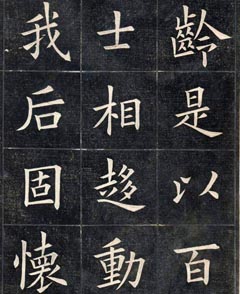 齡是以百
士相趍動
我后固懷